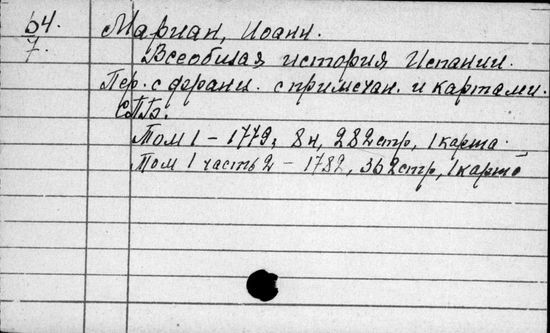 64.
7.
Мариан, Иоанн.
Всеобщая история Испании.
Пер. с франц. с примечан. и картами.
СПБ.
Том 1 – 1779, 8 н, 282 стр, 1 карта.
Том 1 часть 2 – 1782, 362 стр, 1 карта